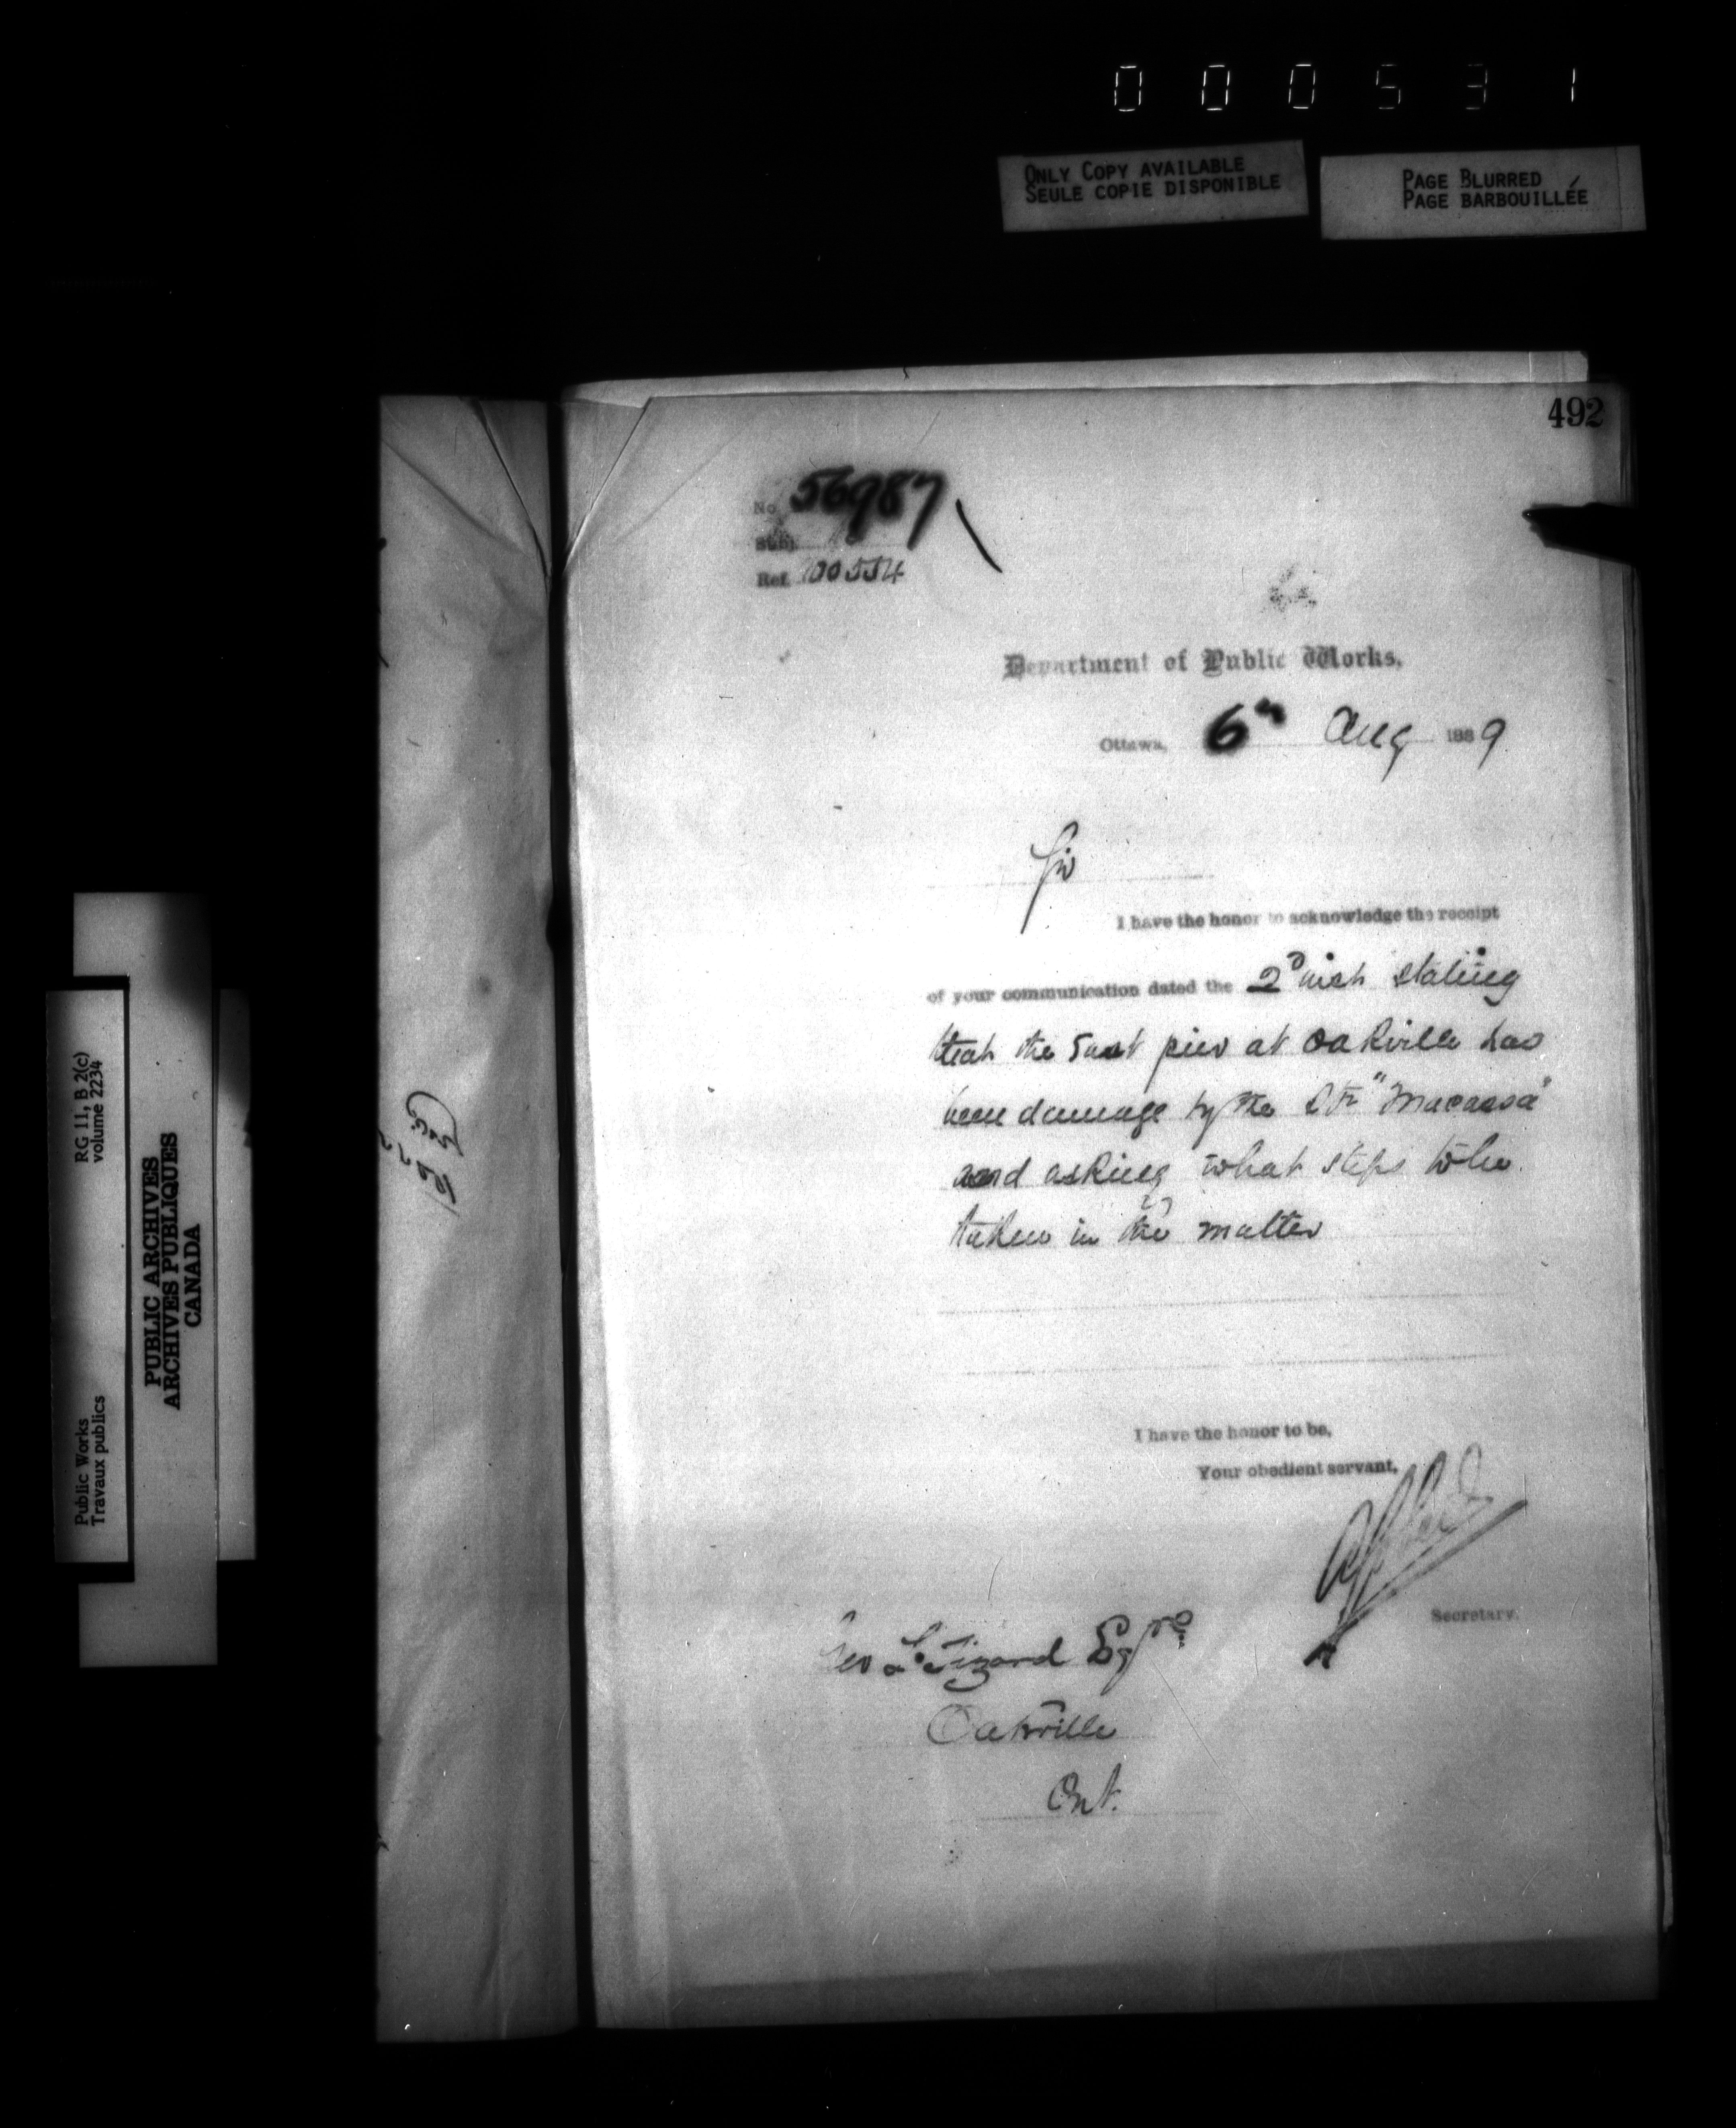 000531
ONLY COPY AVAILABLE
SEULE COPIE DISPONIBLE
PAGE BLURRED
PAGE BARBOUILLÉE
492
No. 56987
Subj.
Ref. 100554
Department of Public Works.
Ottawa, 6th Aug 1889
Sir
I have the honor to acknowledge the receipt
of your communication dated the 2d inst stating
that the East pier at Oakville has
been damage by the Str "Macassa"
and asking what steps to be
taken in the matter
I have the honor to be,
Your obedient servant,
Secretary.
Geo L. Tizard Esqre
Oakville
Ont.
RG 11, B 2(c)
volume 2234
Public Works
Travaux publics
PUBLIC ARCHIVES
ARCHIVES PUBLIQUES
CANADA